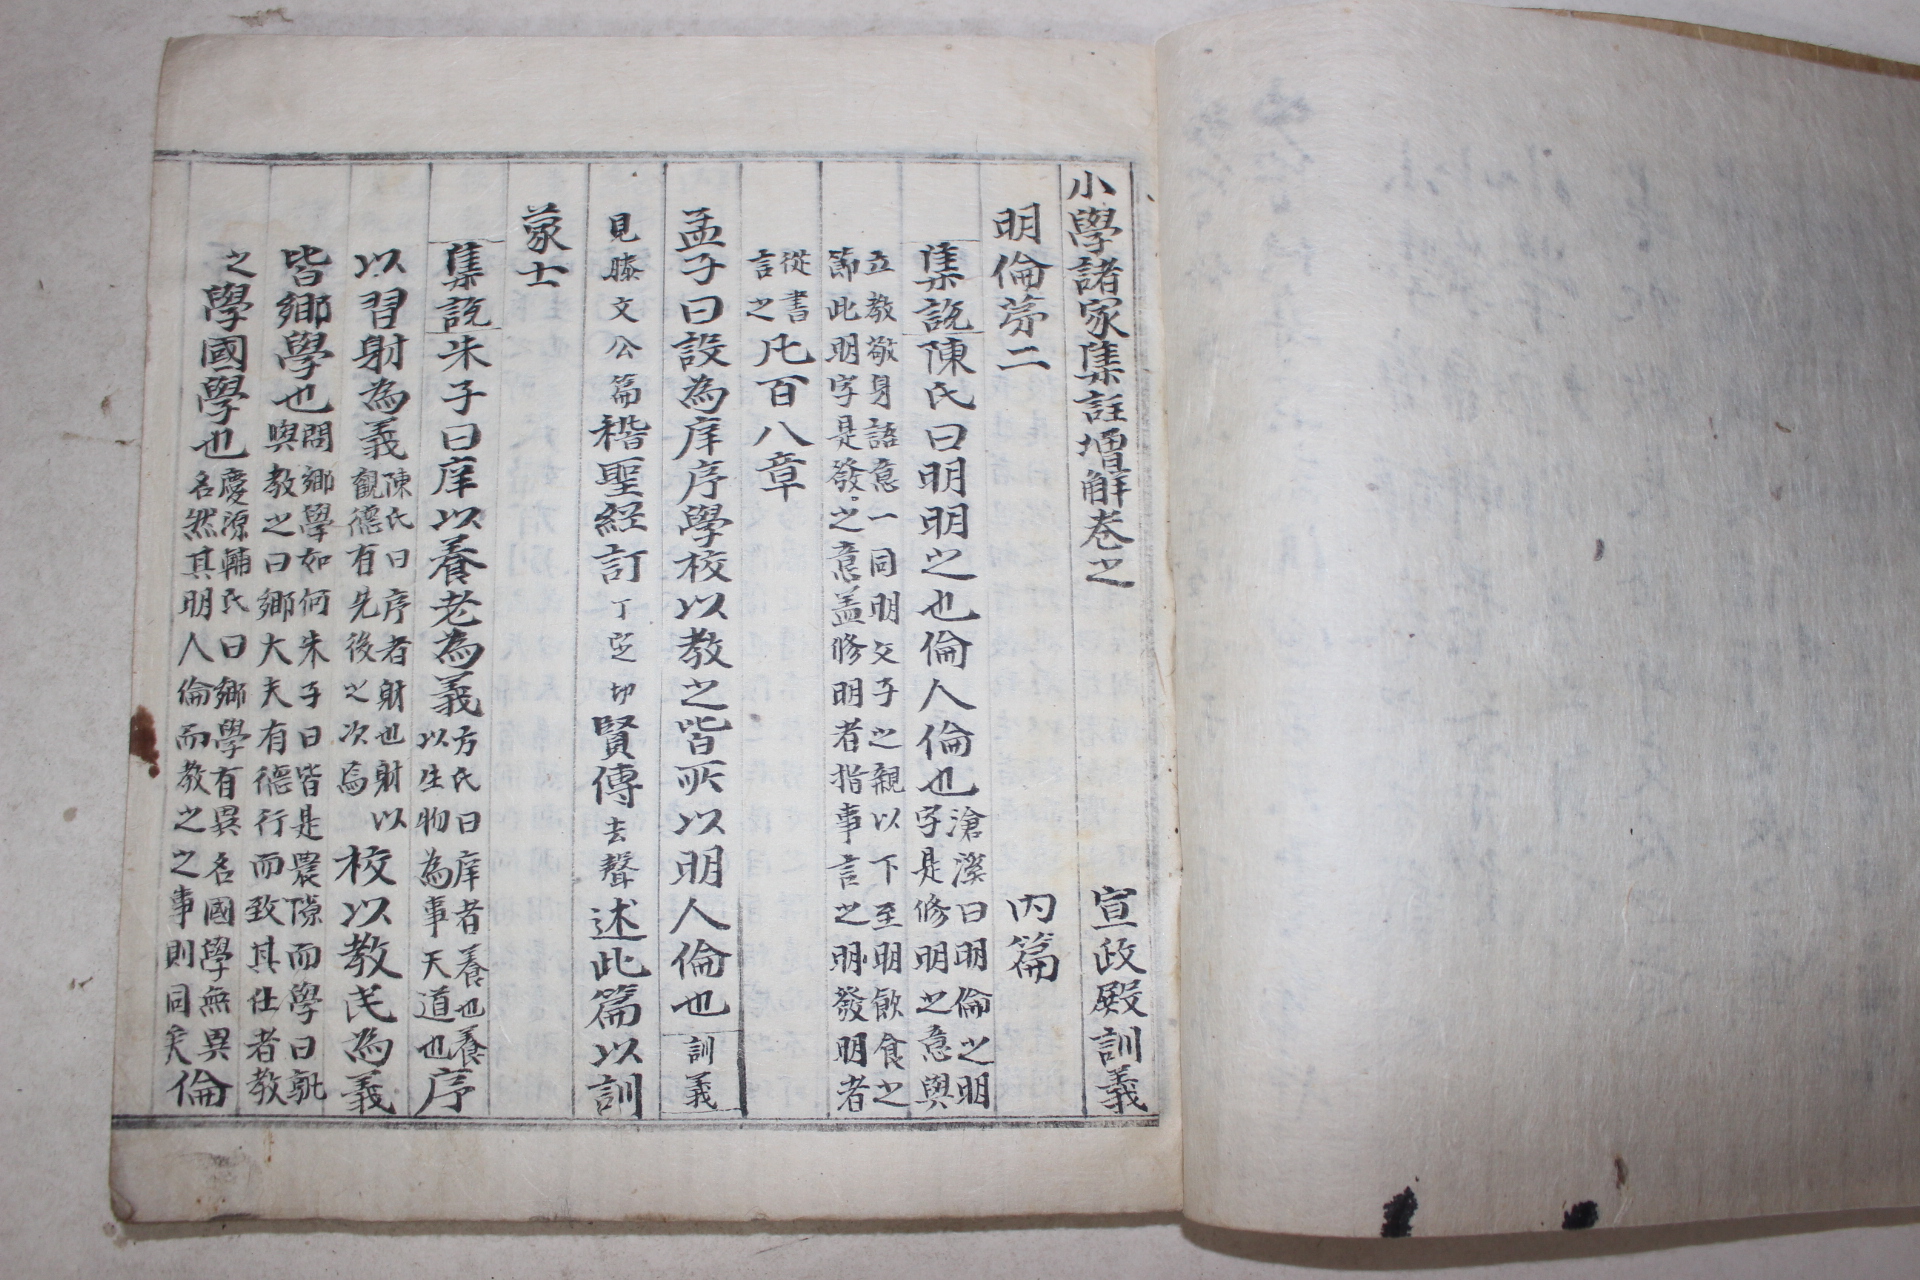 小學諸家集註增解卷之　宣政殿訓義
明倫第二　內篇
集說陳氏曰明明之也倫人倫也滄溪曰明倫之明
字是修明之意與
立敎敬身語意一同明父子之親以下至明飮食之
節此明字是發之意盖修明者指事言之明發明者
從書
言之凡百八章
孟子曰設為庠序學校以教之皆所以明人倫也訓義
見滕文公篇稽聖經訂丁定切賢傳去聲述此篇以訓
蒙士
集說朱子曰庠以養老為義方氏曰庠者養也養
以生物為事天道也序
以習射為義陳氏曰序者射也射以
觀德有先後之次焉校以教民為義
皆鄉學也問鄉學如何朱子曰皆是農隙而學曰孰
與教之曰鄉大夫有德行而致其仕者教
之學國學也慶源輔氏曰鄉學有異名國學無異
名然其明人倫而教之之事則同矣倫